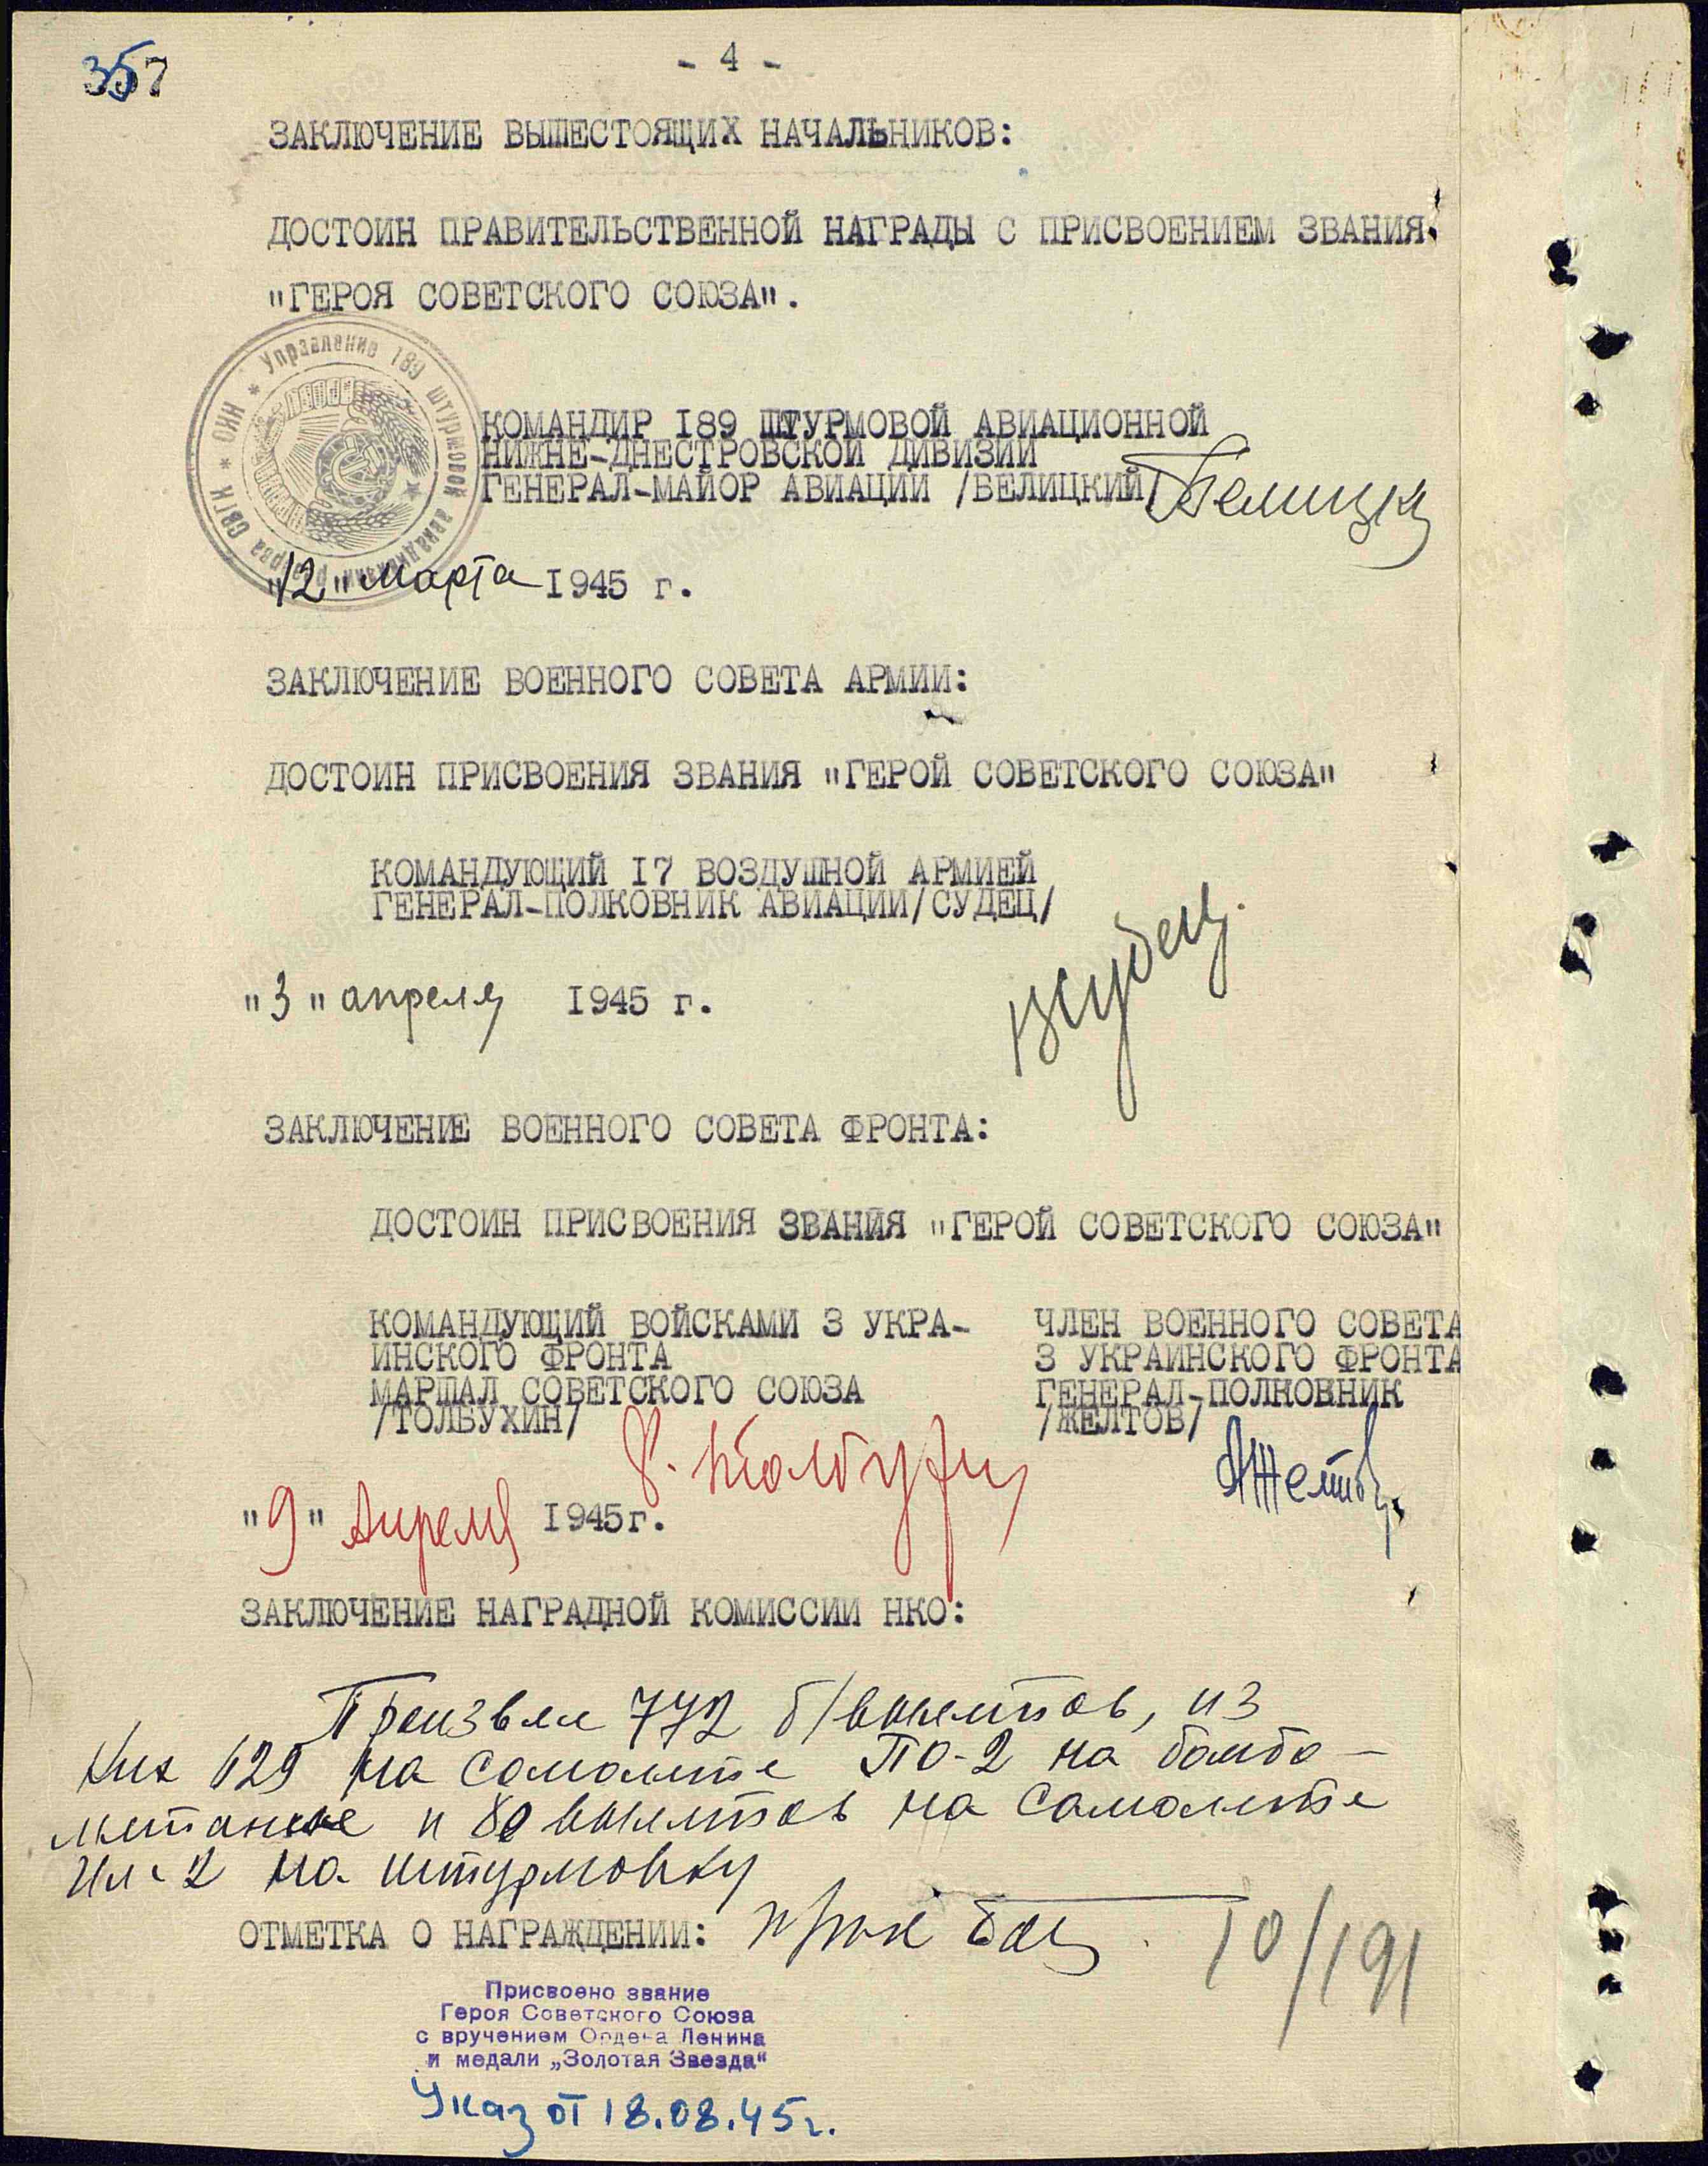 357
- 4 -
ЗАКЛЮЧЕНИЕ ВЫШЕСТОЯЩИХ НАЧАЛЬНИКОВ:
ДОСТОИН ПРАВИТЕЛЬСТВЕННОЙ НАГРАДЫ С ПРИСВОЕНИЕМ ЗВАНИЯ
"ГЕРОЯ СОВЕТСКОГО СОЮЗА".
НКО * Управление 189 штурмовой авиадивизии резерва СВГК *
КОМАНДИР I89 ШТУРМОВОЙ АВИАЦИОННОЙ
НИЖНЕ-ДНЕСТРОВСКОЙ ДИВИЗИИ
ГЕНЕРАЛ-МАЙОР АВИАЦИИ /БЕЛИЦКИЙ/
"12" марта I945 г.
ЗАКЛЮЧЕНИЕ ВОЕННОГО СОВЕТА АРМИИ:
ДОСТОИН ПРИСВОЕНИЯ ЗВАНИЯ "ГЕРОЙ СОВЕТСКОГО СОЮЗА"
КОМАНДУЮЩИЙ I7 ВОЗДУШНОЙ АРМИЕЙ
ГЕНЕРАЛ-ПОЛКОВНИК АВИАЦИИ/СУДЕЦ/
ВСудец
"3" апреля I945 г.
ЗАКЛЮЧЕНИЕ ВОЕННОГО СОВЕТА ФРОНТА:
ДОСТОИН ПРИСВОЕНИЯ ЗВАНИЯ "ГЕРОЙ СОВЕТСКОГО СОЮЗА"
КОМАНДУЮЩИЙ ВОЙСКАМИ 3 УКРА-
ИНСКОГО ФРОНТА
МАРШАЛ СОВЕТСКОГО СОЮЗА
/ТОЛБУХИН/
Ф. Толбухин
ЧЛЕН ВОЕННОГО СОВЕТА
3 УКРАИНСКОГО ФРОНТА
ГЕНЕРАЛ-ПОЛКОВНИК
/ЖЕЛТОВ/
АЖелтов
"9" Апреля I945г.
ЗАКЛЮЧЕНИЕ НАГРАДНОЙ КОМИССИИ НКО:
Произвел 772 б/вылетов, из
них 629 на самолете ПО-2 на бомбо-
метание и 80 вылетов на самолете
Ил-2 на штурмовку
ОТМЕТКА О НАГРАЖДЕНИИ:
10/191
Присвоено звание
Героя Советского Союза
с вручением Ордена Ленина
и медали „Золотая Звезда"
Указ от 18.08.45г.